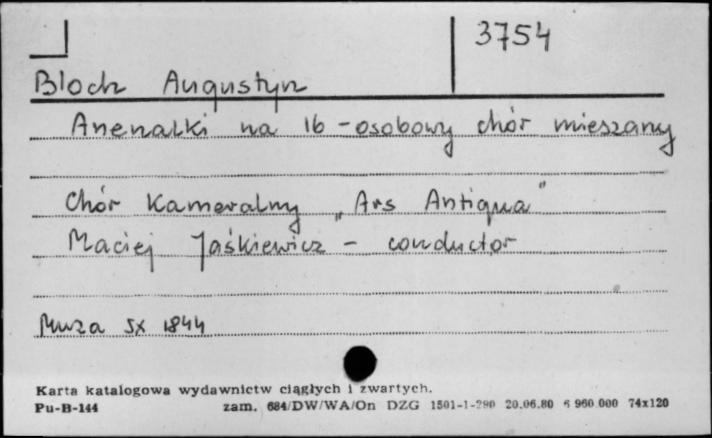 3754
Bloch Augustyn
Anenaiki na 16-osobowy chór mieszany
Chór Kameralny „Ars Antiqua"
Maciej Jaśkiewicz - conductor
Muza SX 1844
Karta katalogowa wydawnictw ciągłych i zwartych.
Pu-B-144 zam. 684/DW/WA/On DZG 1501-1-290 20.06.80 6 960.000 74x120